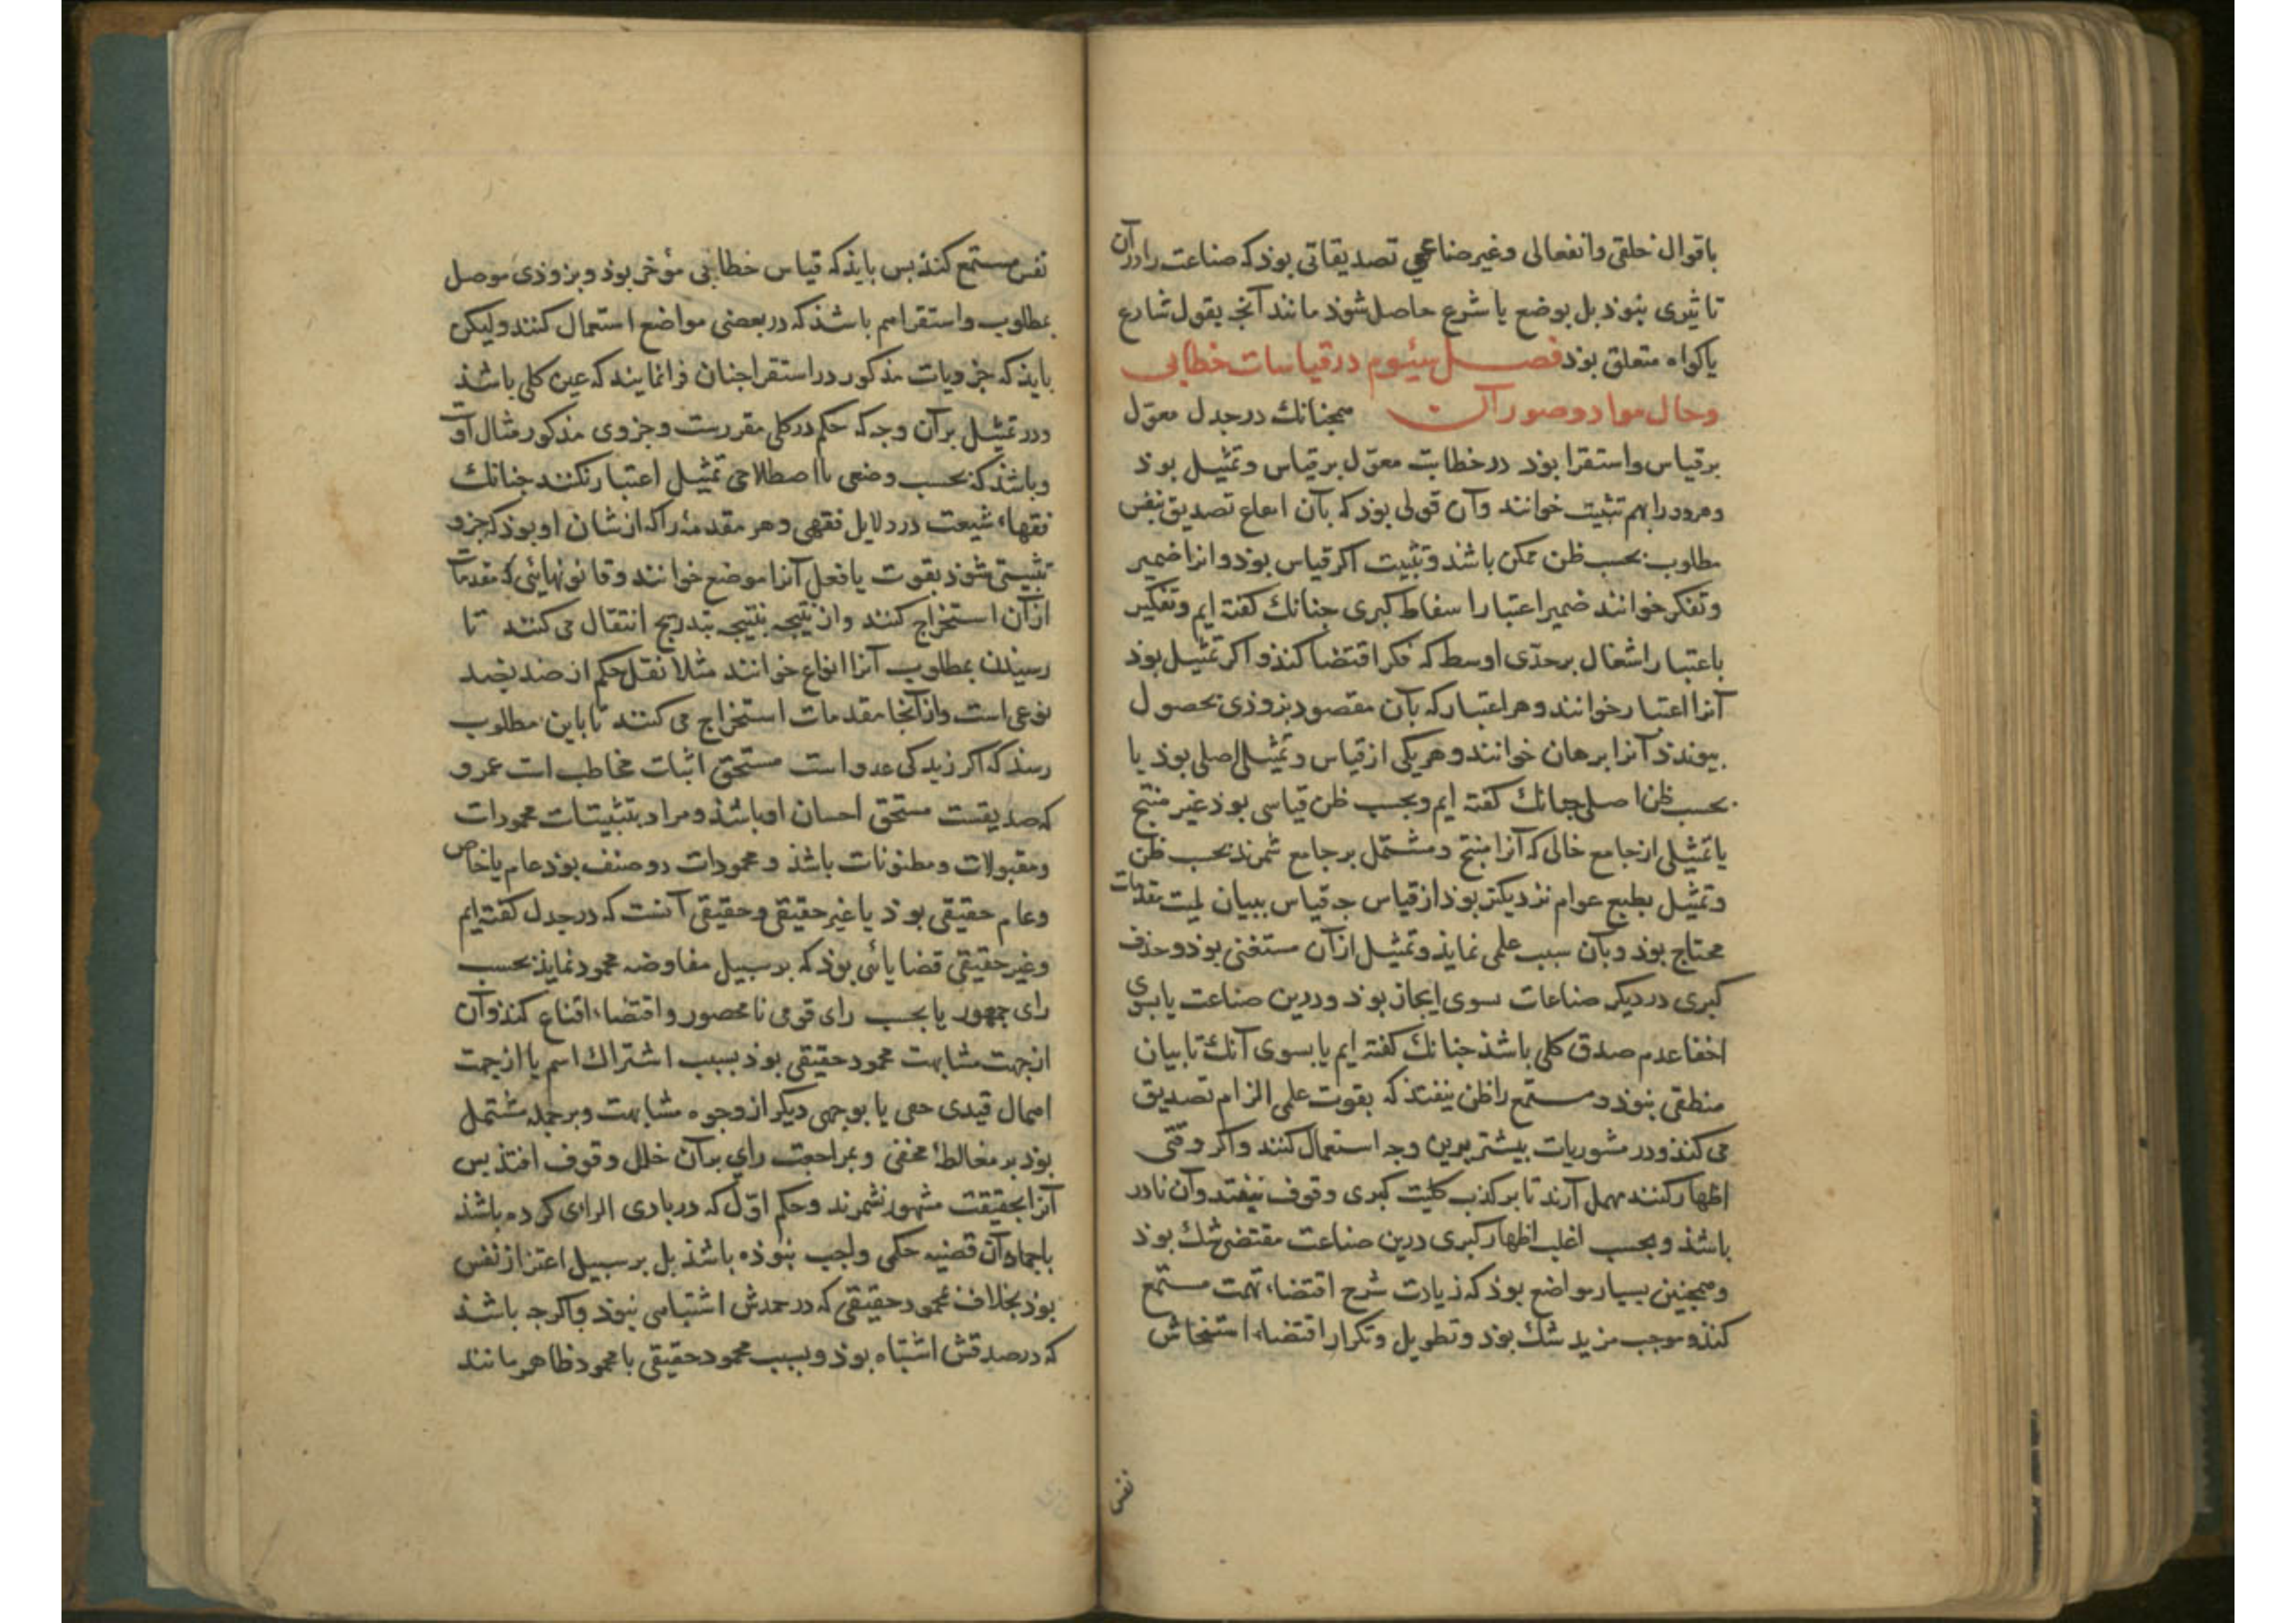 باقوال خلقی وانفعالی وغیر صناعی تصدیقاتی بوذ که صناعت را در آن
تاثیری نبوذ بل بوضع یا شرع حاصل شوذ مانند آنچه بقول شارع
یا کواه متعلق بوذ فصل سیوم در قیاسات خطابی
وحال مواد وصور آن همجنانك در جدل معوّل
بر قیاس واستقرا بوذ در خطابت معوّل بر قیاس وتمثیل بوذ
وهر دو را بهم تثبیت خوانند وآن قولی بوذ که بآن ایقاع تصدیق بنفس
مطلوب بحسب ظن ممکن باشد وتثبیت اکر قیاس بوذ وانرا ضمیر
وتفکیر خوانند ضمیر اعتبار اسقاط کبری جنانك کفته ایم وتفکیر
باعتبار اشتمال بر حدّی اوسط که فکر اقتضا کنذ واکر تمثیل بوذ
آنرا اعتبار خوانند وهر اعتبار که بآن مقصود بزوذی بحصول
بیوندذ آنرا برهان خوانند وهر یکی از قیاس وتمثیل اصلی بوذ یا
بحسب ظن اصلی جنانك کفته ایم وبحسب ظن قیاسی بوذ غیر منتج
یا تمثیلی از جامع خالی که آنرا منتج ومشتمل بر جامع شمرند بحسب ظن
وتمثیل بطبع عوام نزدیکتر بوذ از قیاس جه قیاس ببیان لمیت مقدمات
محتاج بوذ وبآن سبب علمی نمایذ وتمثیل از آن مستغنی بوذ وحذف
کبری در دیکر صناعات سوی ایجاز بوذ ودرین صناعت یا بسوی
اخفا عدم صدق کلی باشذ جنانك کفته ایم یا بسوی آنك تا بیان
منطقی نبوذ ومستمع را ظن نیفتذ که بقوت علمی الزام تصدیق
می کنذ ودر مشوریات بیشتر برین وجه استعمال کنند واکر وقتی
اظهار کنند مهمل آرند تا بر کذب کلیت کبری وقوف نیفتد وآن نادر
باشذ وبحسب اغلب اظهار کبری درین صناعت مقتضی شك بوذ
وهمجنین بسیار مواضع بوذ که زیادت شرح اقتضاء تهمت مستمع
کنذ وموجب مزید شك بوذ وتطویل وتکرار اقتضاء استیحاش
نفس
نفس مستمع کنذ بس بایذ که قیاس خطابی موجز بوذ وبزوذی موصل
بمطلوب واستقرا هم باشذ که در بعضی مواضع استعمال کنند ولیکن
بایذ که جزویات مذکور در استقرا جنان فرا نمایند که عین کلی باشذ
ودر تمثیل بر آن وجه که حکم در کلی مقررست وجزوی مذکور مثال آنست
وباشذ که بحسب وضعی یا اصطلاحی تمثیل اعتبار نکنند جنانك
فقهاء شیعت در دلایل فقهی وهر مقدمهٔ را که از شان او بوذ که جزو
تثبیتی شوذ بقوت یا فعل آنرا موضع خوانند وقانونهائی که مقدمات
از آن استخراج کنند واز نتیجه بنتیجه بتدریج انتقال می کنند تا
رسیذن بمطلوب آنرا انواع خوانند مثلا نقل حکم از ضد بضد
نوعی است واز آنجا مقدمات استخراج می کنند تا باین مطلوب
رسذ که اکر زید کی عدو است مستحق اثبات مخاطب است عمرو
که صدیقست مستحق احسان او باشذ ومراد بتثبیتات محمودات
ومقبولات ومظنونات باشذ ومحمودات دو صنف بوذ عام یا خاص
وعام حقیقی بوذ یا غیر حقیقی وحقیقی آنست که در جدل کفته ایم
وغیر حقیقی قضایائی بوذ که بر سبیل مفاوضه محمود نمایذ بحسب
رای جمهور یا بحسب رای قومی نا محصور واقتضاء اقناع کنذ وآن
از جهت مشابهت محمود حقیقی بوذ بسبب اشتراك اسم یا از جهت
اهمال قیدی خفی یا بوجهی دیکر از وجوه مشابهت وبر جمله مشتمل
بوذ بر مغالطهٔ مخفی وبمراجعت رای بر آن خلل وقوف افتذ بس
آنرا بحقیقت مشهور نشمرند وحکم اوّل که در بادی الرای کرده باشذ
باجماد آن قضیه حکمی واجب نبوذه باشذ بل بر سبیل اغترار نفس
بوذ بخلاف محمود حقیقی که در حمدش اشتباهی نبوذ واکرجه باشذ
که در صدقش اشتباه بوذ وبسبب محمود حقیقی با محمود ظاهر مانند